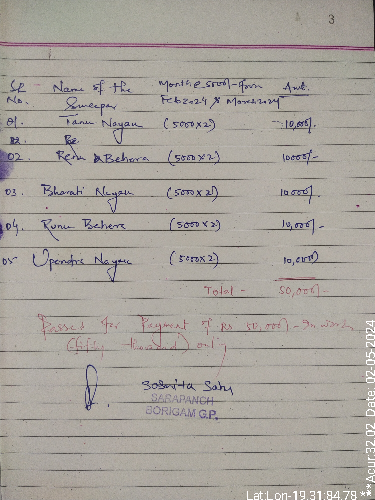 3
Sl No. Name of the Sweeper Month @ 5000/- from Feb 2024 & March 2024 Amt.
01. Tanu Nayau (5000x2) 10,000/-
02. Renu Behera (5000x2) 10000/-
03. Bharati Nayau (5000x2) 10000/-
04. Runu Behera (5000x2) 10,000/-
05 Upendra Nayau (5000x2) 10,000/-
Total - 50,000/-
Passed for Payment of Rs 50,000/- In words
(fifty thousand) only
Sahu
SARAPANCH
BORIGAM G.P.
Lat:Lon-19.31:84.78 *** Acur:32.02 Date: 02-05-2024